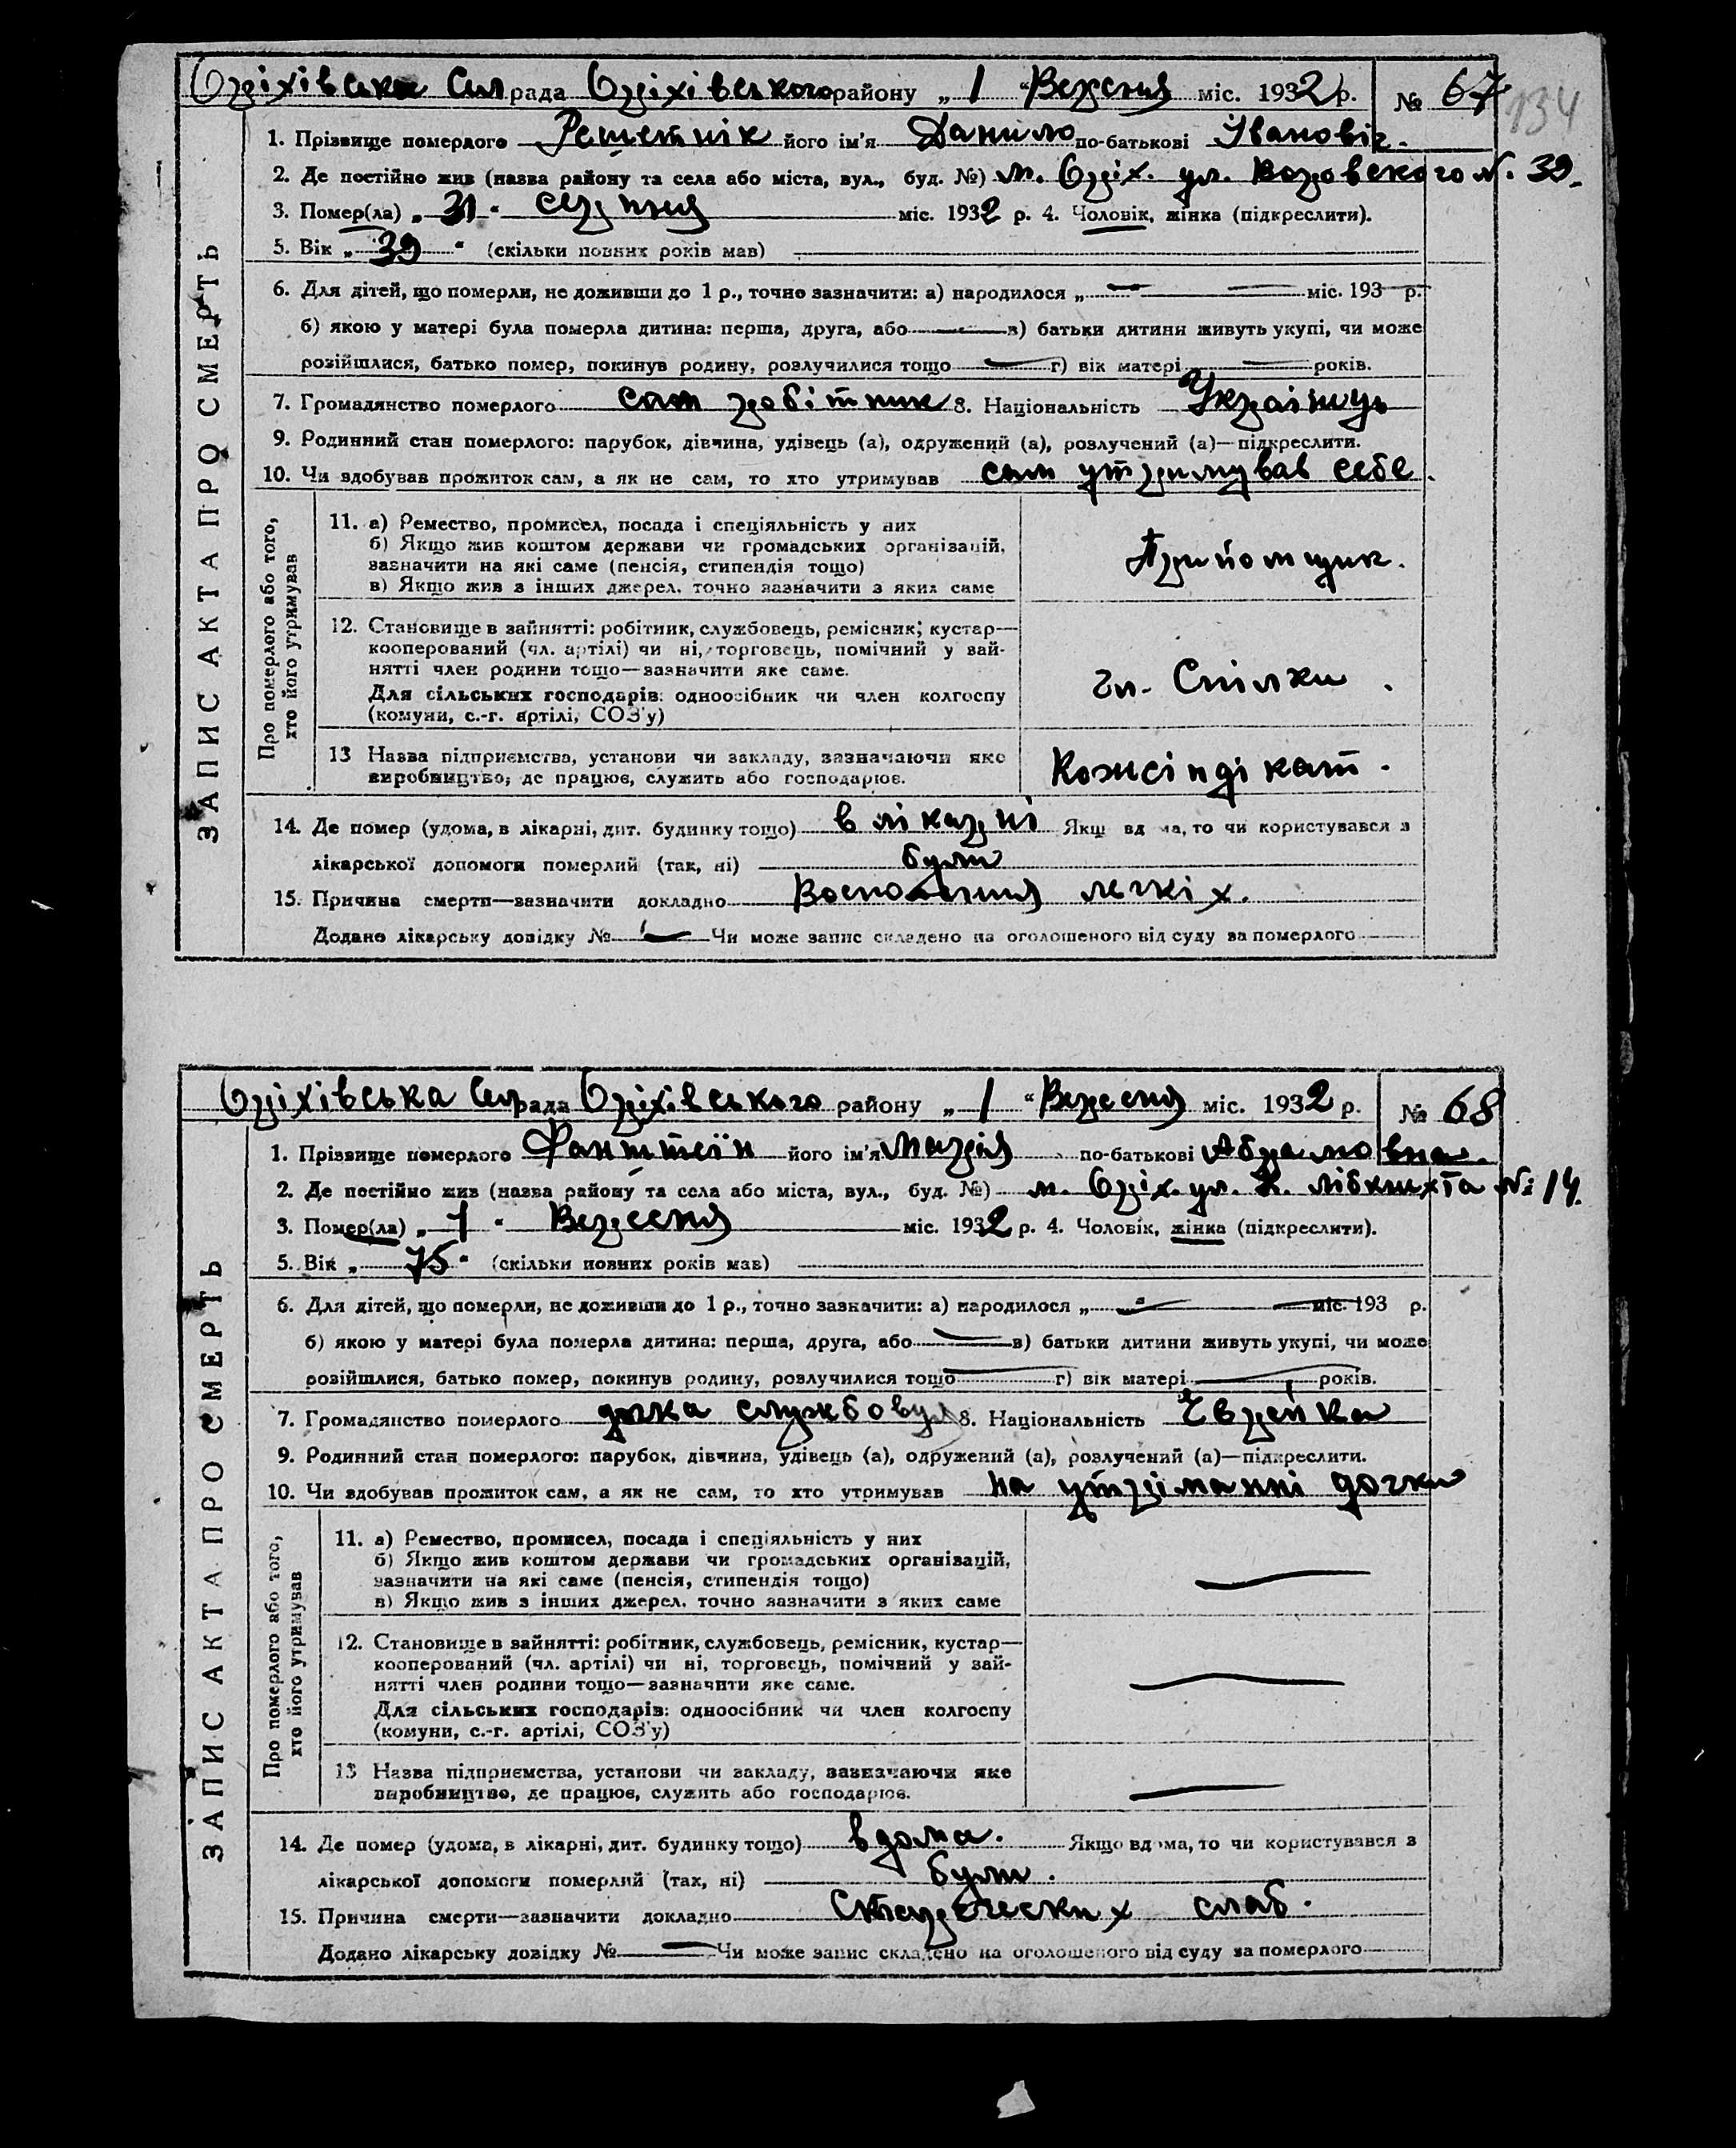 Оріхівська Сел рада Оріхівського району „ 1 “ Вересня міс. 1932 р. № 67
134
1. Прізвище померлого Решетнік його ім'я Данило по-батькові Івановіч.
2. Де постійно жив (назва району та села або міста, вул., буд. №) м. Оріх. ул. N. 39.
3. Помер(ла) „ 31 “ серпня міс. 1932 р. 4. Чоловік, жінка (підкреслити).
5. Вік „ 39 “ (скільки повних років мав)
6. Для дітей, що померли, не доживши до 1 р., точно зазначити: а) народилося „ — — міс. 193 р.
б) якою у матері була померла дитина: перша, друга, або — в) батьки дитини живуть укупі, чи може
розійшлися, батько помер, покинув родину, розлучилися тощо — г) вік матері — років.
7. Громадянство померлого сам робітник 8. Національність Українць
9. Родинний стан померлого: парубок, дівчина, удівець (а), одружений (а), розлучений (а)—підкреслити.
10. Чи здобував прожиток сам, а як не сам, то хто утримував сам утримував себе.
ЗАПИС АКТА ПРО СМЕРТЬ
Про померлого або того,
хто його утримував
11. а) Ремество, промисел, посада і спеціяльність у них
б) Якщо жив коштом держави чи громадських організацій,
зазначити на які саме (пенсія, стипендія тощо)
в) Якщо жив з інших джерел, точно зазначити з яких саме
Прийомщик.
12. Становище в зайнятті: робітник, службовець, ремісник, кустар—
кооперований (чл. артілі) чи ні, торговець, помічний у зай-
нятті член родини тощо—зазначити яке саме.
Для сільських господарів: одноосібник чи член колгоспу
(комуни, с.-г. артілі, СОЗ'у)
чл. Спілки.
13 Назва підприємства, установи чи закладу, зазначаючи яке
виробництво, де працює, служить або господарює.
Кожсіндікат.
14. Де помер (удома, в лікарні, дит. будинку тощо) в лікарні Якщ вд ма, то чи користувався з
лікарської допомоги померлий (так, ні)
15. Причина смерти—зазначити докладно Восполения легкіх.
Додано лікарську довідку № — Чи може запис складено на оголошеного від суду за померлого
Оріхівська Сел рада Оріхівського району „ 1 “ Вересня міс. 1932 р. № 68
1. Прізвище померлого його ім'я Марія по-батькові Абрамовна.
2. Де постійно жив (назва району та села або міста, вул., буд. №) м. Оріх. ул. К. лібкнхта № 14.
3. Помер(ла) „ 1 “ Вересня міс. 1932 р. 4. Чоловік, жінка (підкреслити).
5. Вік „ 75 “ (скільки повних років мав)
6. Для дітей, що померли, не доживши до 1 р., точно зазначити: а) народилося „ — — міс. 193 р.
б) якою у матері була померла дитина: перша, друга, або — в) батьки дитини живуть укупі, чи може
розійшлися, батько помер, покинув родину, розлучилися тощо — г) вік матері — років.
7. Громадянство померлого дочка 8. Національність Еврейка
9. Родинний стан померлого: парубок, дівчина, удівець (а), одружений (а), розлучений (а)—підкреслити.
10. Чи здобував прожиток сам, а як не сам, то хто утримував на утріманні дочки
ЗАПИС АКТА ПРО СМЕРТЬ
Про померлого або того,
хто його утримував
11. а) Ремество, промисел, посада і спеціяльність у них
б) Якщо жив коштом держави чи громадських організацій,
зазначити на які саме (пенсія, стипендія тощо)
в) Якщо жив з інших джерел, точно зазначити з яких саме
—
12. Становище в зайнятті: робітник, службовець, ремісник, кустар—
кооперований (чл. артілі) чи ні, торговець, помічний у зай-
нятті член родини тощо—зазначити яке саме.
Для сільських господарів: одноосібник чи член колгоспу
(комуни, с.-г. артілі, СОЗ'у)
—
13 Назва підприємства, установи чи закладу, зазначаючи яке
виробництво, де працює, служить або господарює.
—
14. Де помер (удома, в лікарні, дит. будинку тощо) вдома. Якщо вдома, то чи користувався з
лікарської допомоги померлий (так, ні)
15. Причина смерти—зазначити докладно слаб.
Додано лікарську довідку № — Чи може запис складено на оголошеного від суду за померлого